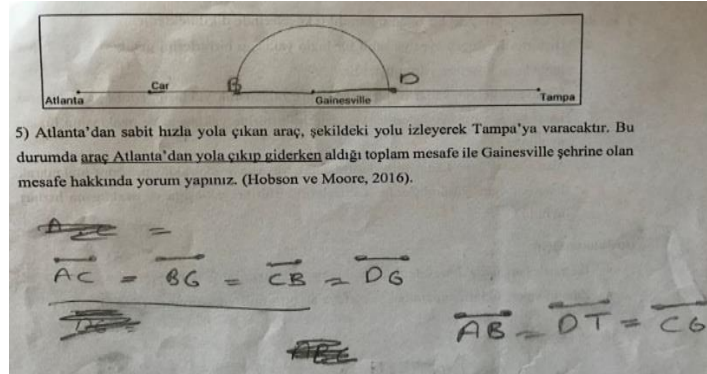 Car B D
Atlanta Gainesville Tampa
5) Atlanta'dan sabit hızla yola çıkan araç, şekildeki yolu izleyerek Tampa'ya varacaktır. Bu
durumda araç Atlanta'dan yola çıkıp giderken aldığı toplam mesafe ile Gainesville şehrine olan
mesafe hakkında yorum yapınız. (Hobson ve Moore, 2016).
=
AC = BG = CB = DG
AB = DT = CG